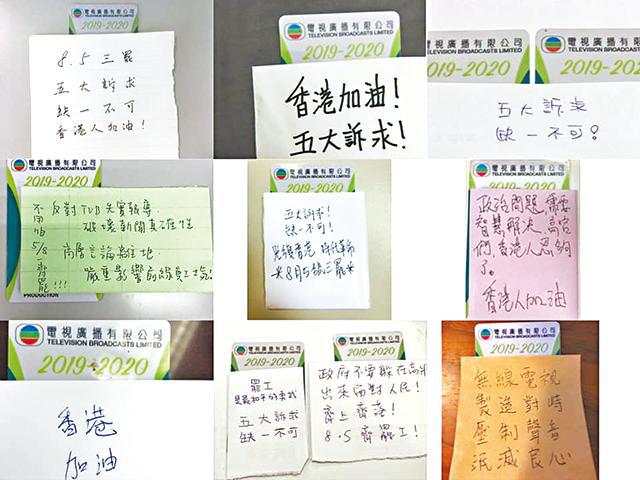 電視廣播有限公司
TELEVISION BROADCASTS LIMITED
2019-2020
8.5三罷
五大訴求
缺一不可
香港人加油!
電視廣播有限公司
TELEVISION BROADCASTS LIMITED
2019-2020
香港加油!
五大訴求!
電視廣播有限公司
TELEVISION BROADCASTS LIMITED
2019-2020
電視廣播有
TELEVISION BROADCA
2019-202
五大訴求
缺一不可?
電視廣播有限公司
TELEVISION BROADCASTS LIMITED
2019-2020
反對TVB失實報導
破壞新聞真確性
高層言論離地
嚴重影響前線員工士氣!
5/8
齊罷!!!
PRODUCTION
2019-2020
五大訴求!
缺一不可!
光復香港 時代革命
電視廣播有限公司
TELEVISION BROADCASTS LIMITED
2019-2020
政治問題,需要
智慧解決,高官
們,香港人忍夠
了。
香港人加油
電視廣播有限公司
TELEVISION BROADCASTS LIMITED
2019-2020
香港
加油
電視廣播有限公司
TELEVISION BROADCASTS LIMITED
2019-2020
罷工
是最和平的
五大訴求
缺一不可
電視廣播有限公司
TELEVISION BROADCASTS LIMITED
2019-2020
政府不要躲在高牆
出來面對人民!
齊上齊落!
8.5齊罷工!
電視廣播有限公司
TELEVISION BROADCASTS LIMITED
2019-2020
無線電視
製造對時
壓制聲音
泯滅良心